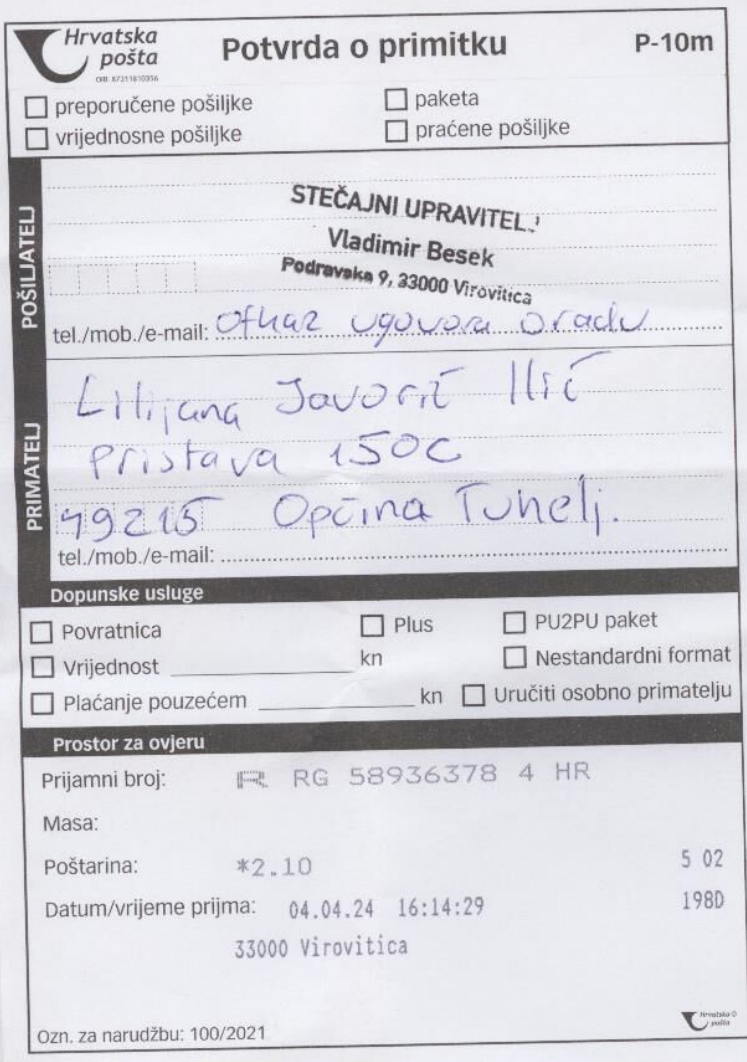 Hrvatska pošta
OIB: 87311810356
Potvrda o primitku
P-10m
preporučene pošiljke
paketa
vrijednosne pošiljke
praćene pošiljke
POŠILJATELJ
STEČAJNI UPRAVITELJ
Vladimir Besek
Podravska 9, 33000 Virovitica
tel./mob./e-mail: otkaz ugovora o radu
PRIMATELJ
Lilijana Javorić Ilić
Pristava 150C
49215 Općina Tuhelj.
tel./mob./e-mail:
Dopunske usluge
Povratnica
Plus
PU2PU paket
Vrijednost kn
Nestandardni format
Plaćanje pouzećem kn
Uručiti osobno primatelju
Prostor za ovjeru
Prijamni broj: R RG 58936378 4 HR
Masa:
Poštarina: *2.10 5 02
Datum/vrijeme prijma: 04.04.24 16:14:29 198D
33000 Virovitica
Ozn. za narudžbu: 100/2021
Hrvatska pošta